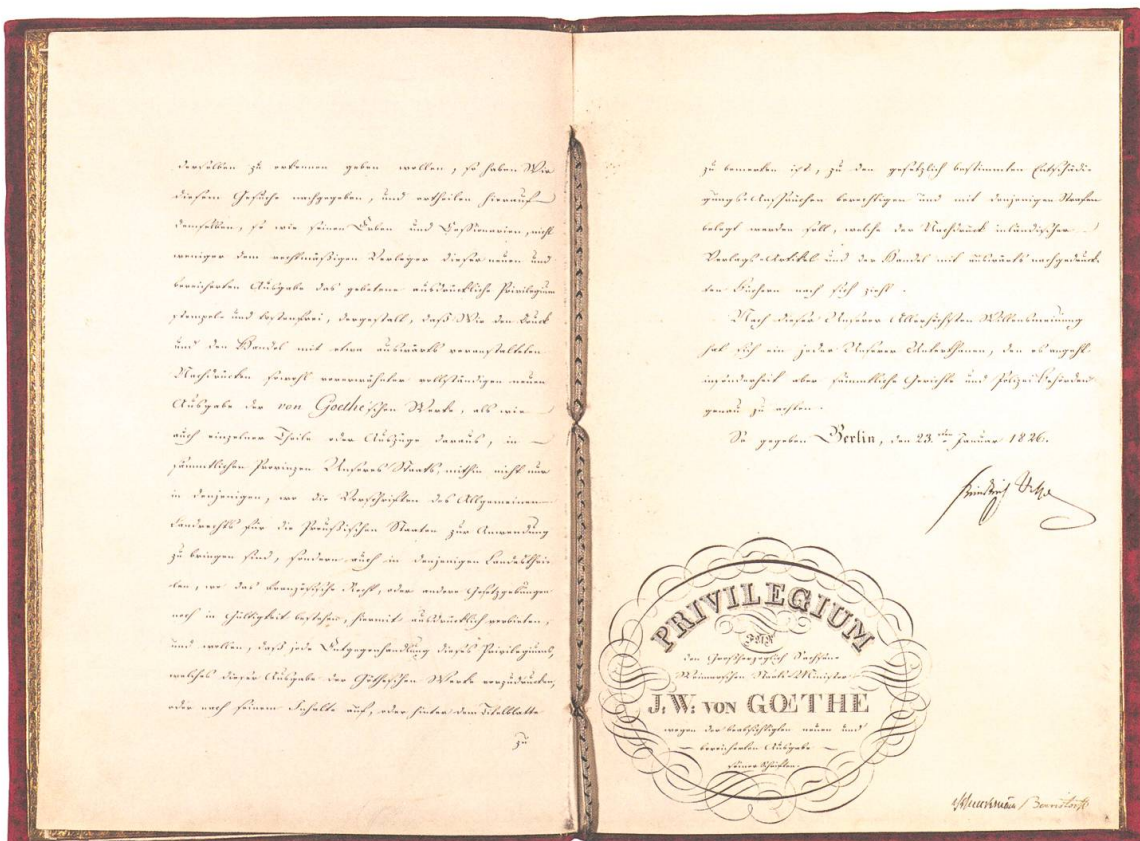 derselben zu erkennen geben wollen, so haben Wir
diesem Gesuche nachgegeben, und ertheilen hierauf
demselben, so wie seinen Erben und Cessionarien, nicht
weniger dem rechtmäßigen Verleger dieser neuen und
bereicherten Ausgabe das gebetene ausdrückliche Privilegium
stempel- und kostenfrei, dergestalt, daß Wir den Druck
und den Handel mit etwa auswärts veranstalteten
Nachdrucken sowohl vorerwähnter vollständigen neuen
Ausgabe der von Goethe'schen Werke, als wie
auch einzelner Theile oder Auszüge daraus, in
sämmtlichen Provinzen Unseres Staats, mithin nicht nur
in denjenigen, wo die Vorschriften des Allgemeinen
Landrechts für die Preußischen Staaten zur Anwendung
zu bringen sind, sondern auch in denjenigen Landesthei-
len, wo das französische Recht, oder andere Gesetzgebungen
noch in Gültigkeit bestehen, hiermit ausdrücklich verbieten,
und wollen, daß jede Entgegenhandlung dieses Privilegiums,
welches dieser Ausgabe der Götheschen Werke vorzudrucken,
oder nach seinem Inhalte auf, oder hinter dem Titelblatte
zu
zu bemerken ist, zu den gesetzlich bestimmten Entschädi-
gungs-Ansprüchen berechtigen und mit denjenigen Strafen
belegt werden soll, welche der Nachdruck inländischer
Verlags-Artikel und der Handel mit auswärts nachgedruck-
ten Büchern nach sich zieht.
Nach dieser Unserer Allerhöchsten Willensmeinung
hat sich ein jeder Unserer Unterthanen, den es angeht
insonderheit aber sämmtliche Gerichte und Polizei-Behörden
genau zu achten.
So gegeben Berlin, den 23.ten Januar 1826.
PRIVILEGIUM
FÜR
den Großherzoglich Sachsen-
Weimarschen Staats-Minister
J. W. VON GOETHE
wegen der beabsichtigten neuen und
bereicherten Ausgabe
seiner Schriften.
Schuckmann / Bernstorff